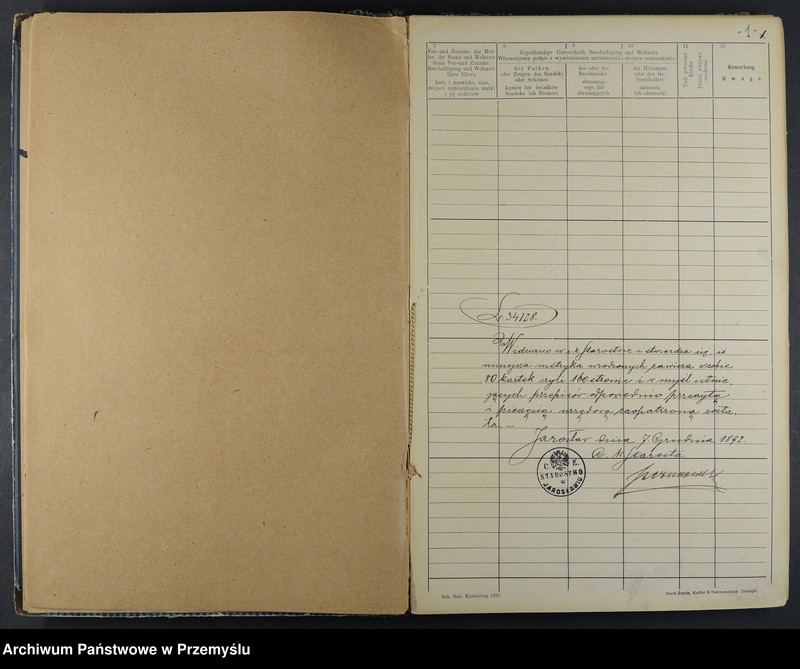 -1-
7
Vor- und Zuname der Mut-
ter, ihr Stand und Wohnort
dann Vor-und Zuname
Beschäftigung und Wohnort
ihrer Eltern
Imię i nazwisko, stan,
miejsce zamieszkania matki
i jej rodziców
8
9
10
Eigenhändige Unterschrift, Beschäftigung und Wohnort
Własnoręczny podpis z wymienieniem zatrudnienia i miejsca zamieszkania
der Pathen
oder Zeugen des Sandeks
oder Schames
kumów lub świadków
Sandeka lub Szamesa
des oder der
Beschneider
obrzezają-
cego lub
obrzezających
der Hebamme
oder des Ge-
burtshelfers
akuszera
lub akuszerki
11
Todt geborene
Kinder
Dzieci nieżywo
urodzone
12
Anmerkung
Uwaga
L. 34128.
Widziano w c. k. Starostwie i stwierdza się, iż
niniejsza metryka urodzonych zawiera w sobie
80 kartek czyli 160 stronic i w myśl istnie-
jących przepisów odpowiednio przeszytą
i pieczęcią urzędową zaopatrzoną zosta-
ła. —
Jarosław dnia 7. Grudnia 1892.
C. k. Starosta
C. K.
STAROSTWO
W
JAROSŁAWIU
Archiwum Państwowe w Przemyślu